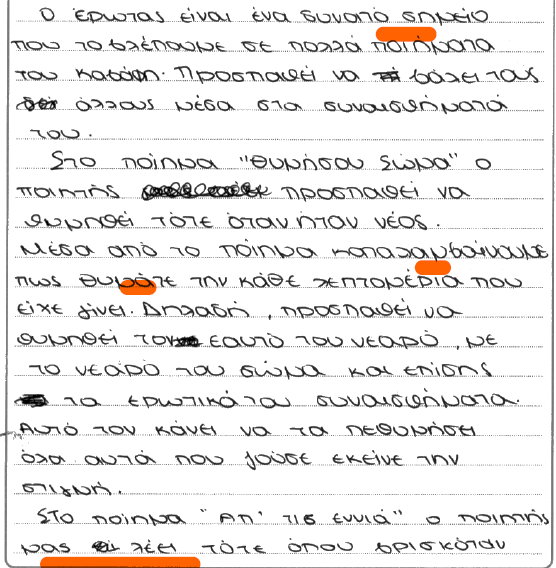 Ο έρωτας είναι ένα συνατό σημείο
που το βλέπουμε σε πολλά ποιήματα
του Καβάφη. Προσπαθεί να βάλει τους
άλλους μέσα στα συναισθήματά
του.
Στο ποίημα "Θυμήσου Σώμα" ο
ποιητής προσπαθεί να
θυμηθεί τότε όταν ήταν νέος.
Μέσα από το ποίημα καταλαμβαίνουμε
πως θυμάτε την κάθε λεπτομέρια που
είχε γίνει. Δηλαδή, προσπαθεί να
θυμηθεί τον εαυτό του νεαρό, με
το νεαρό του σώμα και επίσης
τα ερωτικά του συναισθήματα.
Αυτό τον κάνει να τα πεθυμήσει
όλα αυτά που ζούσε εκείνε την
στιγμή.
Στο ποίημα "Απ' τις εννιά" ο ποιητής
μας λέει τότε όπου βρισκόταν